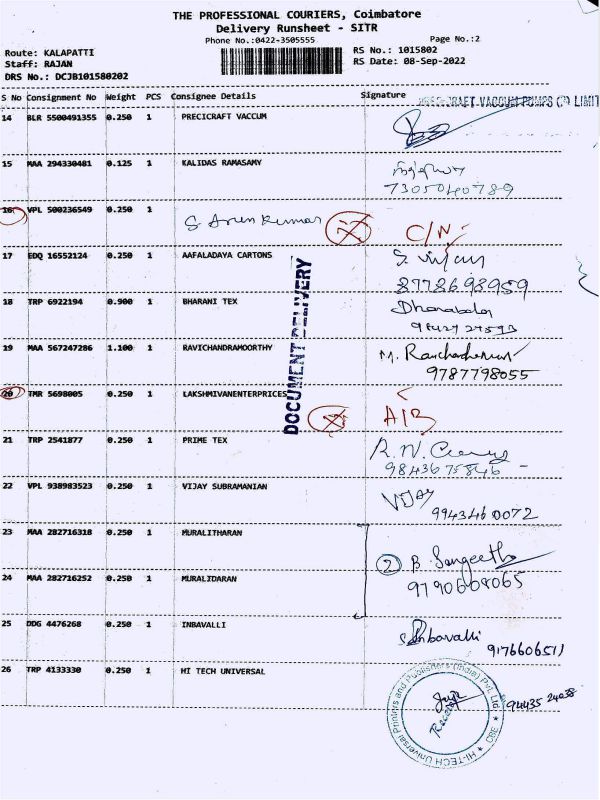 THE PROFESSIONAL COURIERS, Coimbatore
Delivery Runsheet - SITR
Phone No.:0422-3505555 Page No.:2
Route: KALAPATTI RS No.: 1015802
Staff: RAJAN RS Date: 08-Sep-2022
DRS No.: DCJB101580202
S No Consignment No Weight PCS Consignee Details Signature
14 BLR 5500491355 0.250 1 PRECICRAFT VACCUM
15 MAA 294330481 0.125 1 KALIDAS RAMASAMY
7305040789
16 VPL 500236549 0.250 1 S Arun Kumar C/N
17 EDQ 16552124 0.250 1 AAFALADAYA CARTONS
8778698959
18 TRP 6922194 0.900 1 BHARANI TEX
19 MAA 567247286 1.100 1 RAVICHANDRAMOORTHY
9787798055
DOCUMENT DELIVERY
20 TMR 5698005 0.250 1 LAKSHMIVANENTERPRICES
21 TRP 2541877 0.250 1 PRIME TEX
9843675846
22 VPL 938983523 0.250 1 VIJAY SUBRAMANIAN VIJAY
9943460072
23 MAA 282716318 0.250 1 MURALITHARAN
2 B. Sangeetha
24 MAA 282716252 0.250 1 MURALIDARAN 9790608065
25 DDG 4476268 0.250 1 INBAVALLI
26 TRP 4133330 0.250 1 HI TECH UNIVERSAL
94435 24038
HI-TECH Universal Printers and Publishers (India) Pvt. Ltd. CBE